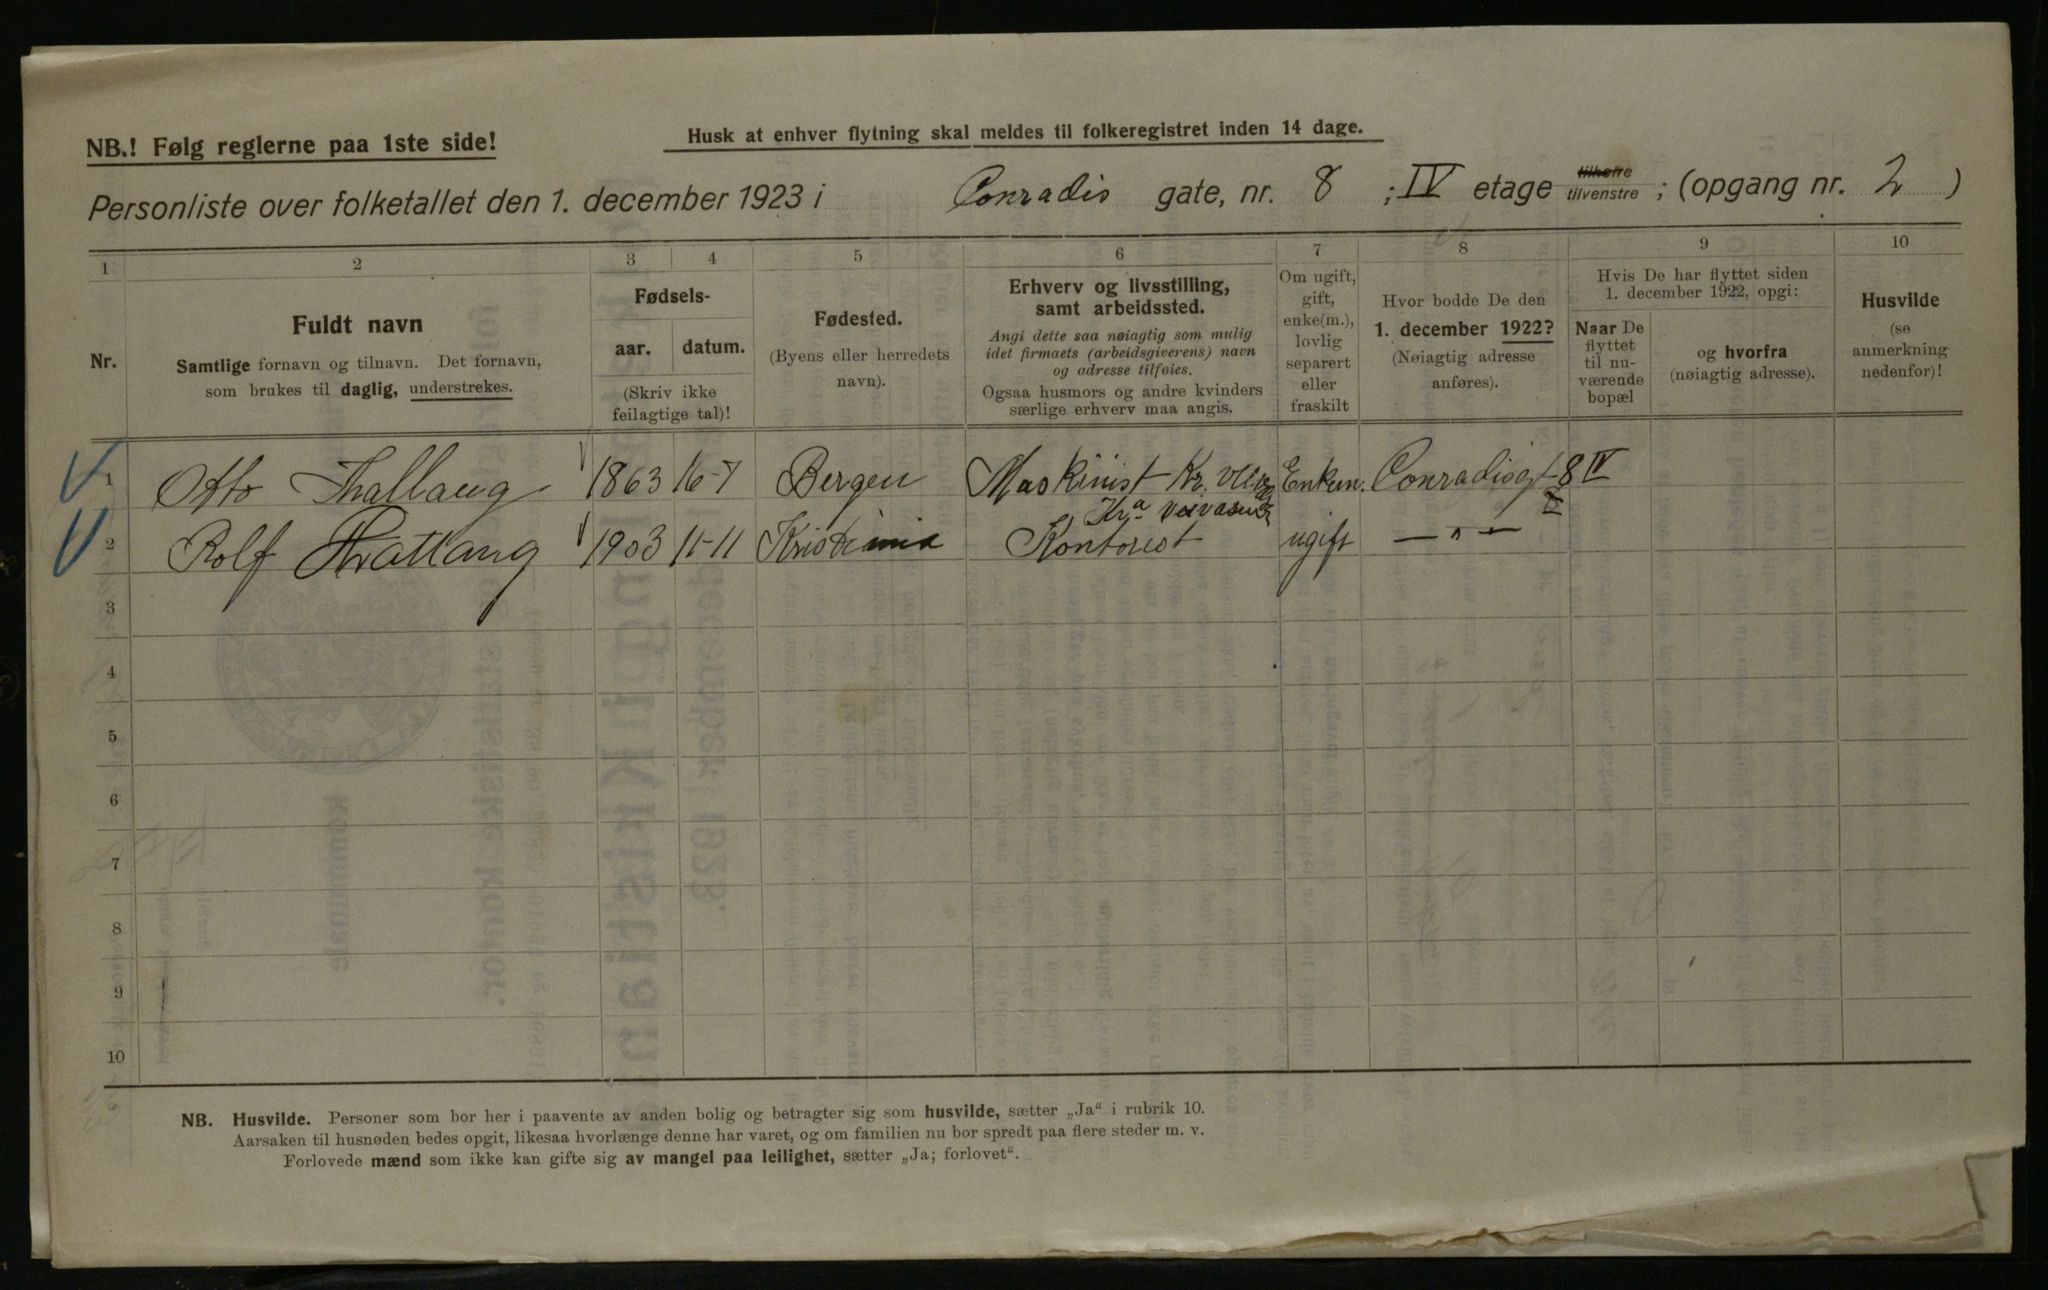 Husk at enhver flytning skal meldes til folkeregistret inden 14 dage.
NB.! Følg reglerne paa 1ste side!
Personliste over folketallet den 1. december 1923 i Conradis gate, nr. 8 ; IV etage tilhøire tilvenstre ; (opgang nr. 2 )
1 2 3 4 5 6 7 8 9 10
Nr.
Fuldt navn
Samtlige fornavn og tilnavn. Det fornavn,
som brukes til daglig, understrekes.
Fødsels-
aar. datum.
(Skriv ikke
feilagtige tal)!
Fødested.
(Byens eller herredets
navn).
Erhverv og livsstilling,
samt arbeidssted.
Angi dette saa nøiagtig som mulig
idet firmaets (arbeidsgiverens) navn
og adresse tilføies.
Ogsaa husmors og andre kvinders
særlige erhverv maa angis.
Om ugift,
gift,
enke(m.),
lovlig
separert
eller
fraskilt
Hvor bodde De den
1. december 1922?
(Nøiagtig adresse
anføres).
Hvis De har flyttet siden
1. december 1922, opgi:
Naar De
flyttet
til nu-
værende
bopæl
og hvorfra
(nøiagtig adresse).
Husvilde
(se
anmerkning
nedenfor)!
1 Otto Thallaug 1863 16-7 Bergen Maskinist Kr. Enkem. Conradisgt 8 IV
Kra
2 Rolf Thallaug 1903 11-11 Kristiania Kontorist ugift — " —
3
4
5
6
7
8
9
10
NB. Husvilde. Personer som bor her i paavente av anden bolig og betragter sig som husvilde, sætter „Ja“ i rubrik 10.
Aarsaken til husnøden bedes opgit, likesaa hvorlænge denne har varet, og om familien nu bor spredt paa flere steder m. v.
Forlovede mænd som ikke kan gifte sig av mangel paa leilighet, sætter „Ja; forlovet“.